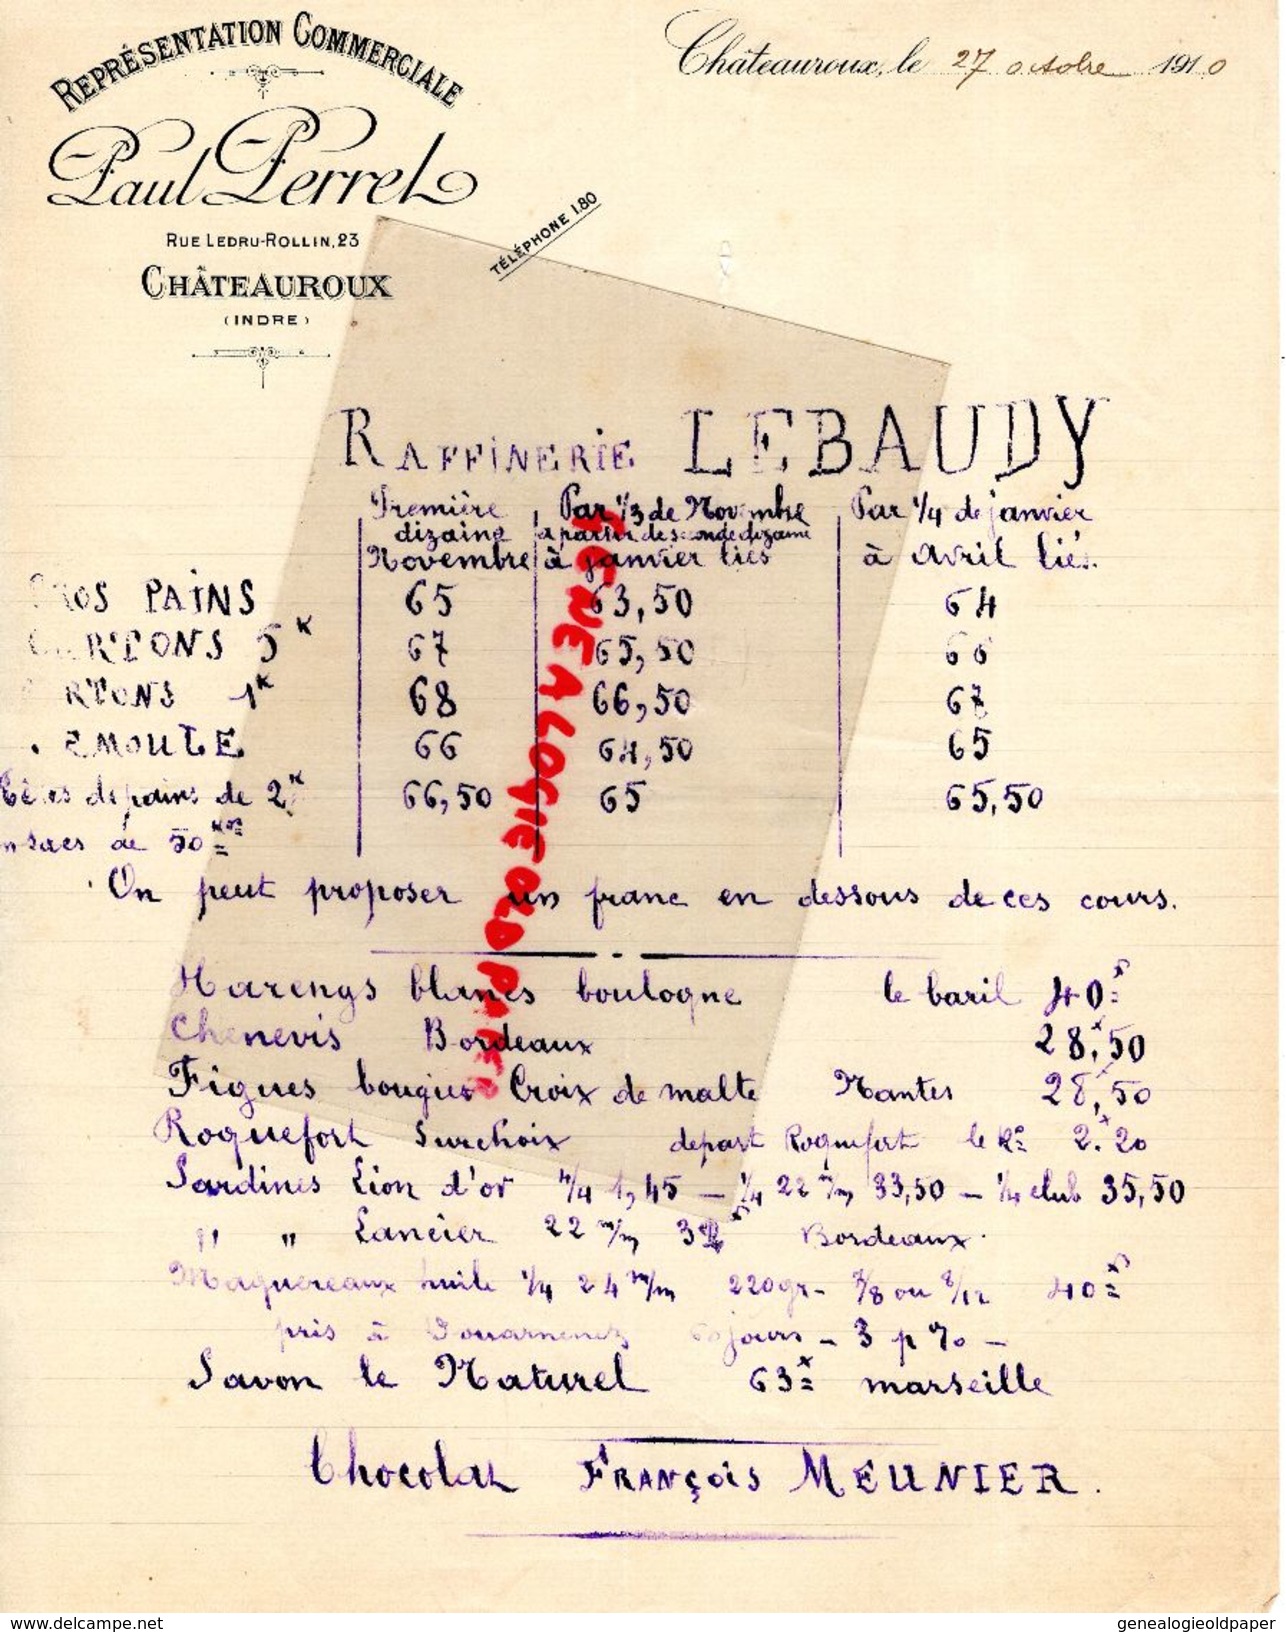 REPRÉSENTATION COMMERCIALE
Paul Perrel
RUE LEDRU-ROLLIN, 23
CHÂTEAUROUX
(INDRE)
TÉLÉPHONE 1.80
Châteauroux, le 27 octobre 1910
RAFFINERIE LEBAUDY
Première dizaine Novembre
Par 1/3 de Novembre a partir de seconde dizaine à janvier liés
Par 1/4 de janvier à avril liés.
GROS PAINS 65 63,50 64
CARTONS 5 K 67 65,50 66
CARTONS 1 K 68 66,50 67
SEMOULE 66 64,50 65
Têtes de pains de 2 K 66,50 65 65,50
en sacs de 50 Kos
On peut proposer un franc en dessous de ces cours.
Harengs blancs boulogne le baril 40 f
Chenevis Bordeaux 28 f,50
Figues bougies Croix de malte Nantes 28,50
Roquefort Surchoix depart Roquefort le Ko 2 f 20
Sardines Lion d'or 4/4 1,45 – 1/4 22 m/m 33,50 – 1/4 club 35,50
" " Lancier 22 m/m 32 f Bordeaux.
Maquereaux huile 1/4 24 m/m 220gr – 7/8 ou 8/12 40 f
pris à Douarnenez 60 jours – 3 p % –
Savon le Naturel 63 f marseille
Chocolat FRANÇOIS MEUNIER.
GENEALOGIEOLDPAPER
genealogieoldpaper
www.delcampe.net